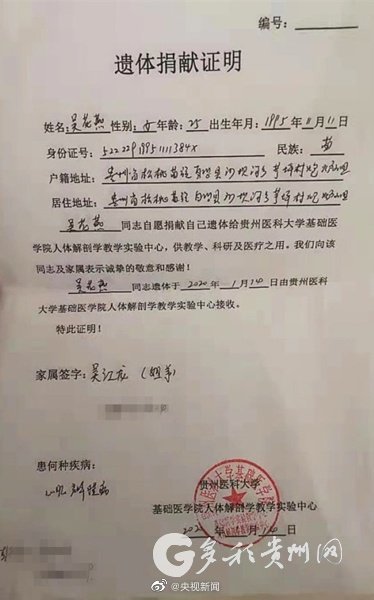 编号:
遗体捐献证明
姓名:吴花燕 性别:女 年龄:25 出生年月:1995年11月11日
身份证号: 民族:苗
户籍地址:贵州省松桃苗
居住地址:贵州省松桃苗
吴花燕 同志自愿捐献自己遗体给贵州医科大学基础医
学院人体解剖学教学实验中心,供教学、科研及医疗之用。我们向该
同志及家属表示诚挚的敬意和感谢!
吴花燕 同志遗体于 2020 年 1 月 14 日由贵州医科
大学基础医学院人体解剖学教学实验中心接收。
特此证明!
家属签字:吴江龙
患何种疾病:
贵州医科大学
基础医学院人体解剖学教学实验中心
多彩贵州网
@央视新闻